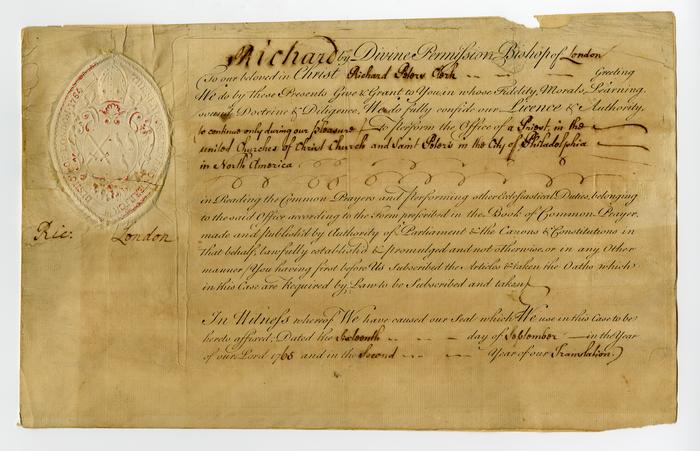 Richard by Divine Permission Bishop of London
To our beloved in Christ Richard Peters Clerk Greeting
We do by these Presents Give & Grant to You, in whose Fidelity, Morals, Learning,
sound Doctrine & Diligence, We do fully confide our Licence & Authority,
to continue only during our pleasure to Perform the Office of a Priest, in the
united Churches of Christ Church and Saint Peters in the City of Philadelphia
in North America
in Reading the Common Prayers and Performing other Ecclesiastical Duties, belonging
to the said Office according to the Form prescribed in the Book of Common Prayer,
made and published by Authority of Parliament & the Canons & Constitutions in
that behalf, lawfully established & promulged and not otherwise, or in any Other
manner (You having first before Us Subscribed the Articles & taken the Oaths which
in this Case are Required by Law to be Subscribed and taken)
Ric: London
In Witness whereof We have caused our Seal which We use in this Case to be
hereto affixed, Dated the Sixteenth day of September in the Year
of our Lord 1765 and in the Second Year of our Translation.